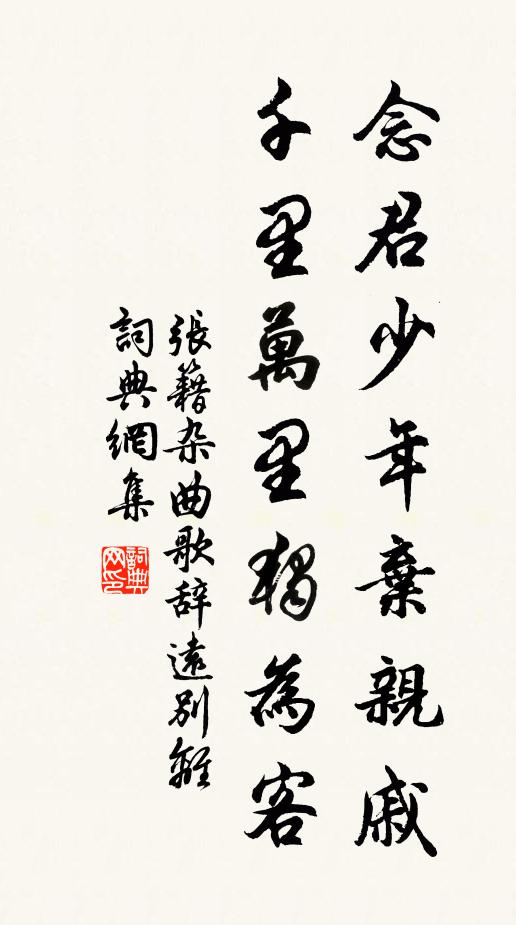 念君少年棄親戚
千里萬里獨為客
張籍杂曲歌辞遠別離
詞典網集
詞典网印